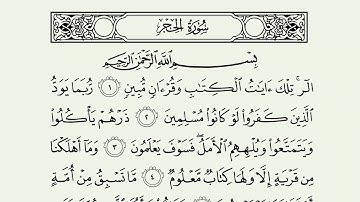 سُورَةُ الحِجْرِ
بِسْمِ ٱللَّهِ ٱلرَّحْمَٰنِ ٱلرَّحِيمِ
الٓر ۚ تِلْكَ ءَايَٰتُ ٱلْكِتَٰبِ وَقُرْءَانٍ مُّبِينٍ ١ رُّبَمَا يَوَدُّ
ٱلَّذِينَ كَفَرُوا۟ لَوْ كَانُوا۟ مُسْلِمِينَ ٢ ذَرْهُمْ يَأْكُلُوا۟
وَيَتَمَتَّعُوا۟ وَيُلْهِهِمُ ٱلْأَمَلُ ۖ فَسَوْفَ يَعْلَمُونَ ٣ وَمَآ أَهْلَكْنَا
مِن قَرْيَةٍ إِلَّا وَلَهَا كِتَابٌ مَّعْلُومٌ ٤ مَّا تَسْبِقُ مِنْ أُمَّةٍ